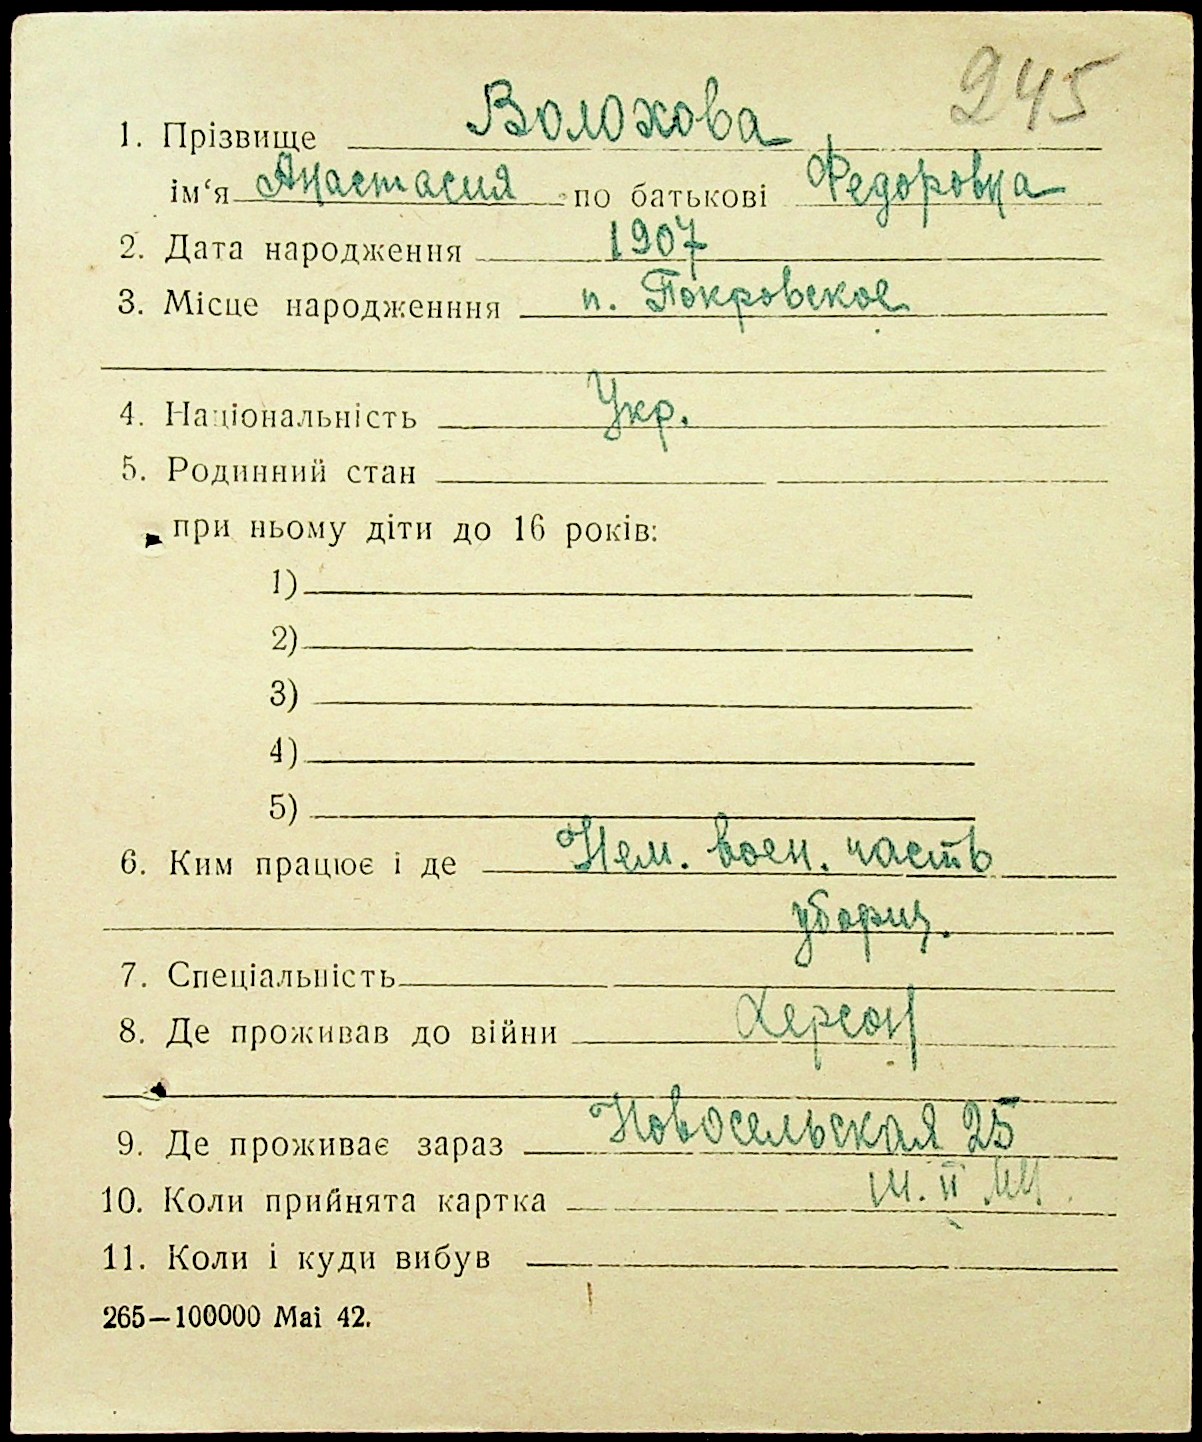 245
1. Прізвище Волохова
ім‘я Анастасия по батькові Федоровна
2. Дата народження 1907
3. Місце народженння п. Покровское
4. Національність Укр.
5. Родинний стан
при ньому діти до 16 років:
1)
2)
3)
4)
5)
6. Ким працює і де Нем. воен. часть
уборщ.
7. Спеціальність
8. Де проживав до війни Херсон
9. Де проживає зараз Новосельская 25
10. Коли прийнята картка
11. Коли і куди вибув
265—100000 Mai 42.